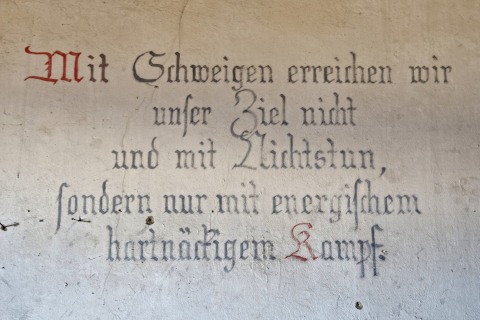 Mit Schweigen erreichen wir
unser Ziel nicht
und mit Nichtstun,
sondern nur mit energischem
hartnäckigem Kampf.